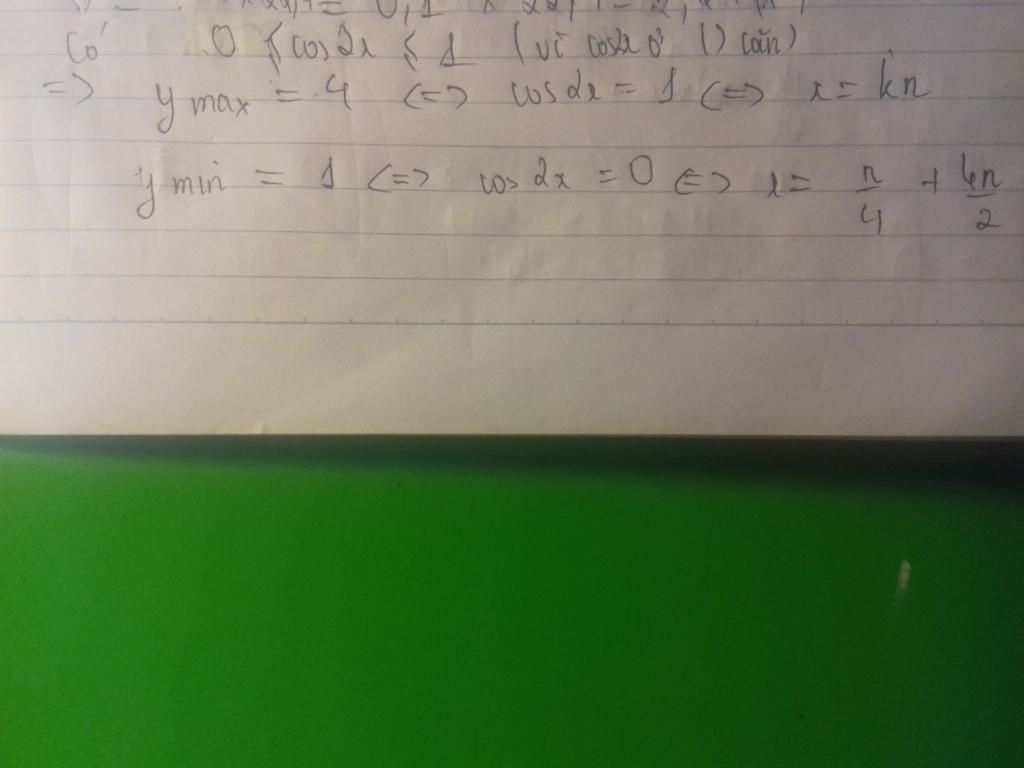 Có 0 ≤ cos2x ≤ 1 (vì cos2x ở () căn)
=> y max = 4 <=> cos2x = 1 <=> x = kπ
y min = 1 <=> cos 2x = 0 <=> x = π/4 + kπ/2